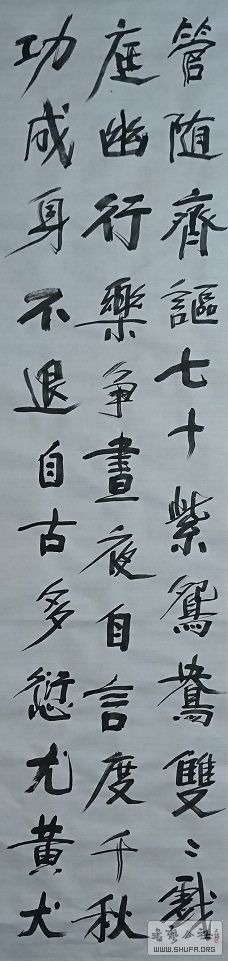 管随齊謳七十紫鴛鴦雙〻戲
庭幽行樂争晝夜自言度千秋
功成身不退自古多愆尤黄犬
書藝公社
WWW.SHUFA.ORG